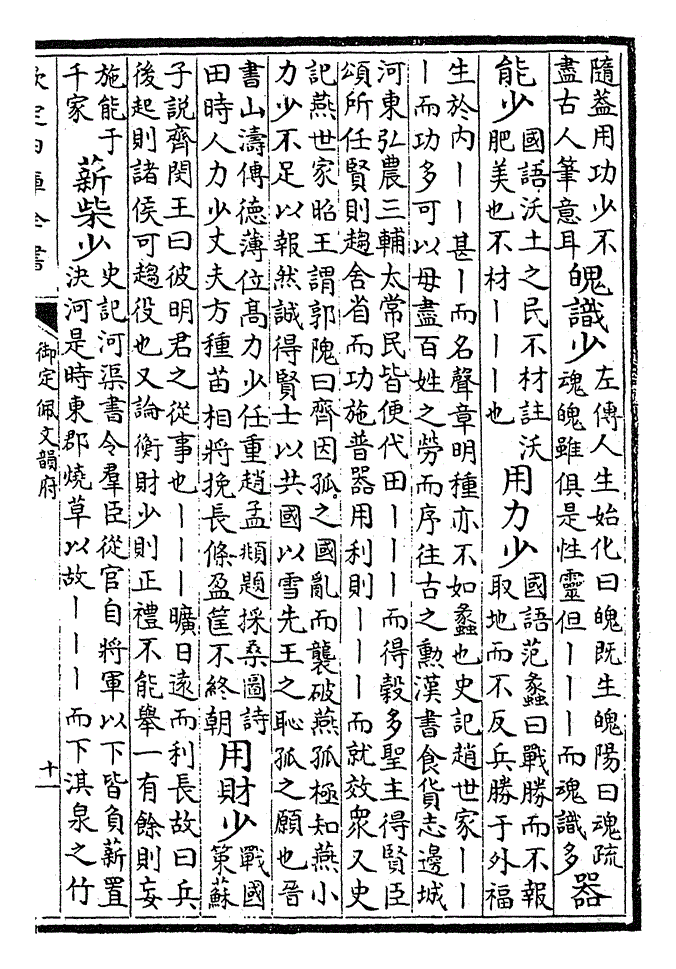 隨蓋用功少不
盡古人筆意耳
魄識少
左傳人生始化曰魄既生魄陽曰魂疏
魂魄雖俱是性靈但丨丨丨而魂識多
器
能少
國語沃土之民不材註沃
肥美也不材丨丨丨也
用力少
國語范蠡曰戰勝而不報
取地而不反兵勝于外福
生於內丨丨甚丨而名聲章明種亦不如蠡也史記趙世家丨丨
丨而功多可以毋盡百姓之勞而序往古之勳漢書食貨志邊城
河東弘農三輔太常民皆便代田丨丨丨而得穀多聖主得賢臣
頌所任賢則趨舍省而功施普器用利則丨丨丨而就效衆又史
記燕世家昭王謂郭隗曰齊因孤之國亂而襲破燕孤極知燕小
力少不足以報然誠得賢士以共國以雪先王之恥孤之願也晉
書山濤傳德薄位高力少任重趙孟頫題採桑圖詩
田時人力少丈夫方種苗相將挽長條盈筐不終朝
用財少
戰國
策蘇
子説齊閔王曰彼明君之從事也丨丨丨曠日遠而利長故曰兵
後起則諸侯可趨役也又論衡財少則正禮不能舉一有餘則妄
施能于
千家
薪柴少
史記河渠書令羣臣從官自將軍以下皆負薪置
決河是時東郡燒草以故丨丨丨而下淇泉之竹
欽定四庫全書
御定佩文韻府
十一